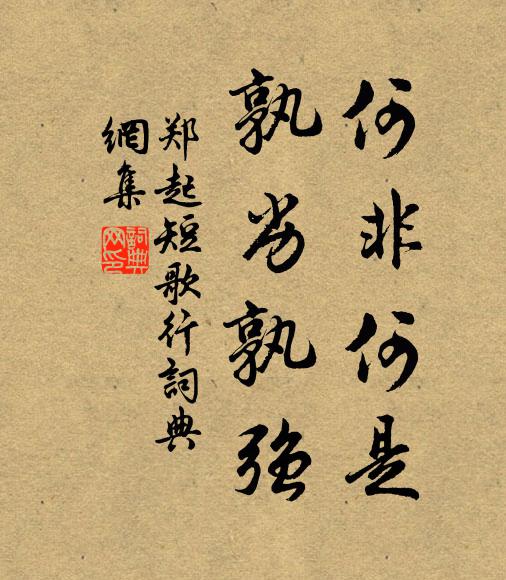 何非何是
孰劣孰强
郑起短歌行词典
網集
詞典
网印